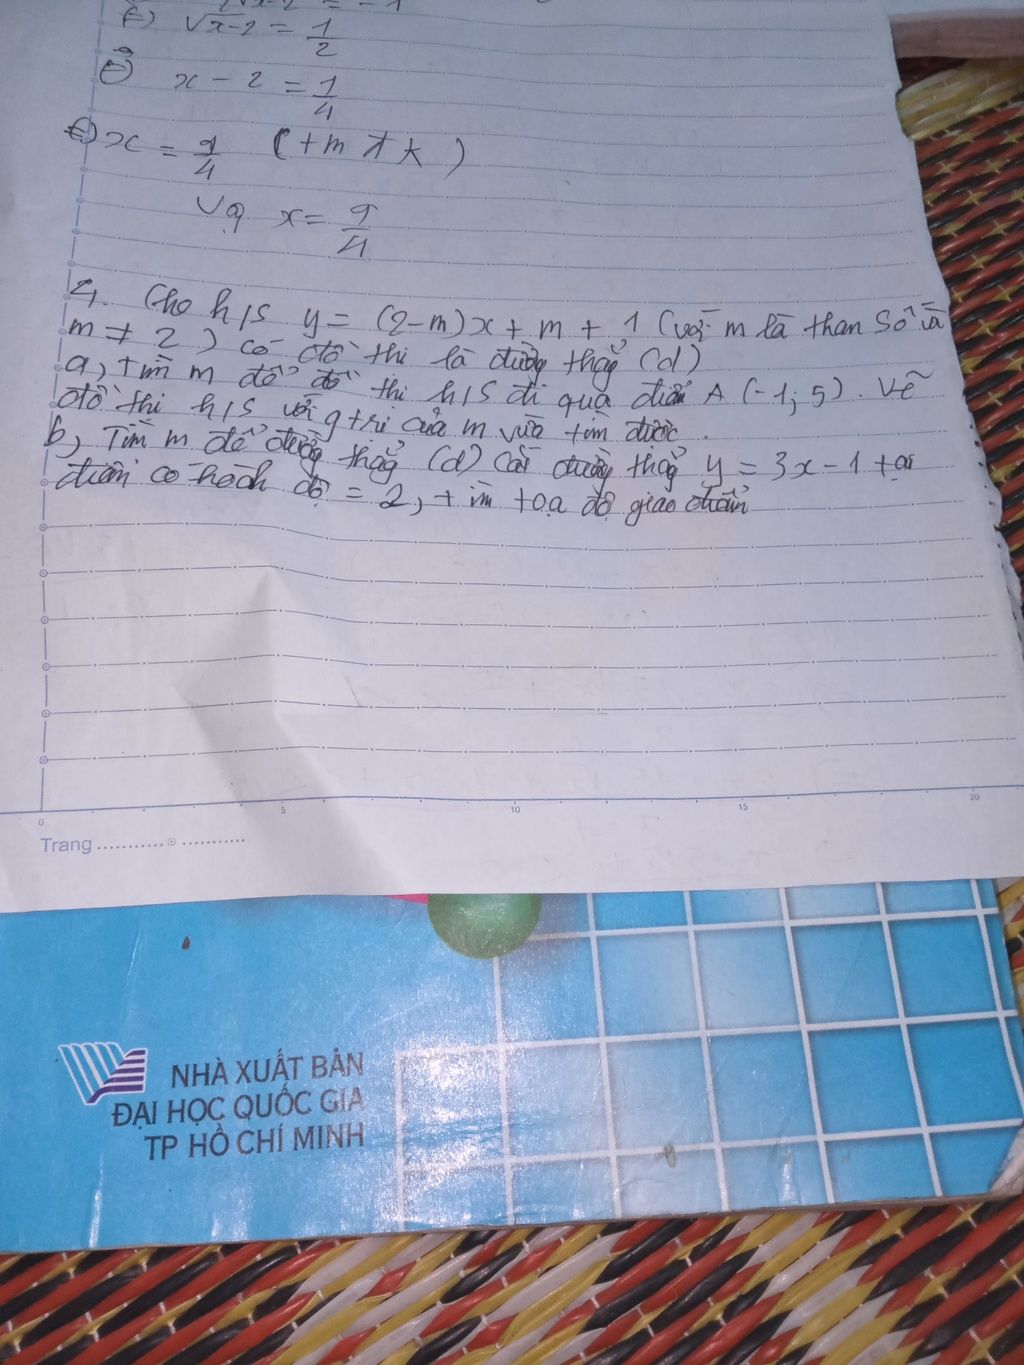 2√x-2 = -1
(=) √x-2 = 1/2
(=) x - 2 = 1/4
(=) x = 9/4 (+m đ k)
Vậy x = 9/4
4. Cho h/s y = (2-m)x + m + 1 (với m là tham số và
m ≠ 2) có đồ thị là đường thẳng (d)
a, tìm m để đồ thị h/s đi qua điểm A (-1; 5). Vẽ
đồ thị h/s với gtrị của m vừa tìm được.
b, Tìm m để đường thẳng (d) cắt đường thẳng y = 3x - 1 tại
điểm có hoành độ = 2, tìm toạ độ giao điểm
0 5 10 15 20
Trang
NHÀ XUẤT BẢN
ĐẠI HỌC QUỐC GIA
TP HỒ CHÍ MINH